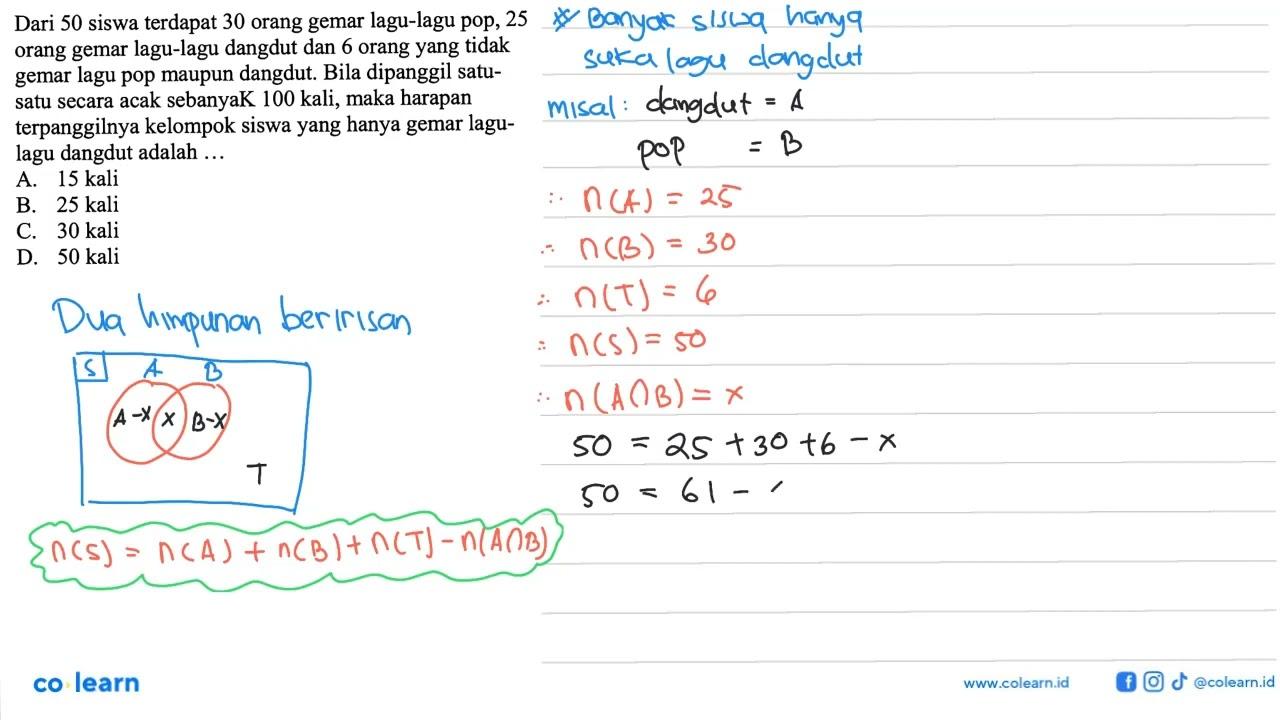 Dari 50 siswa terdapat 30 orang gemar lagu-lagu pop, 25
orang gemar lagu-lagu dangdut dan 6 orang yang tidak
gemar lagu pop maupun dangdut. Bila dipanggil satu-
satu secara acak sebanyaK 100 kali, maka harapan
terpanggilnya kelompok siswa yang hanya gemar lagu-
lagu dangdut adalah ...
A. 15 kali
B. 25 kali
C. 30 kali
D. 50 kali
Dua himpunan beririsan
S A B
A-x x B-x
T
n(S) = n(A) + n(B) + n(T) - n(A∩B)
* Banyak siswa hanya
suka lagu dangdut
misal: dangdut = A
pop = B
∴ n(A) = 25
∴ n(B) = 30
∴ n(T) = 6
: n(S) = 50
∴ n(A∩B) = x
50 = 25 + 30 + 6 - x
50 = 61 -
co learn
www.colearn.id
@colearn.id